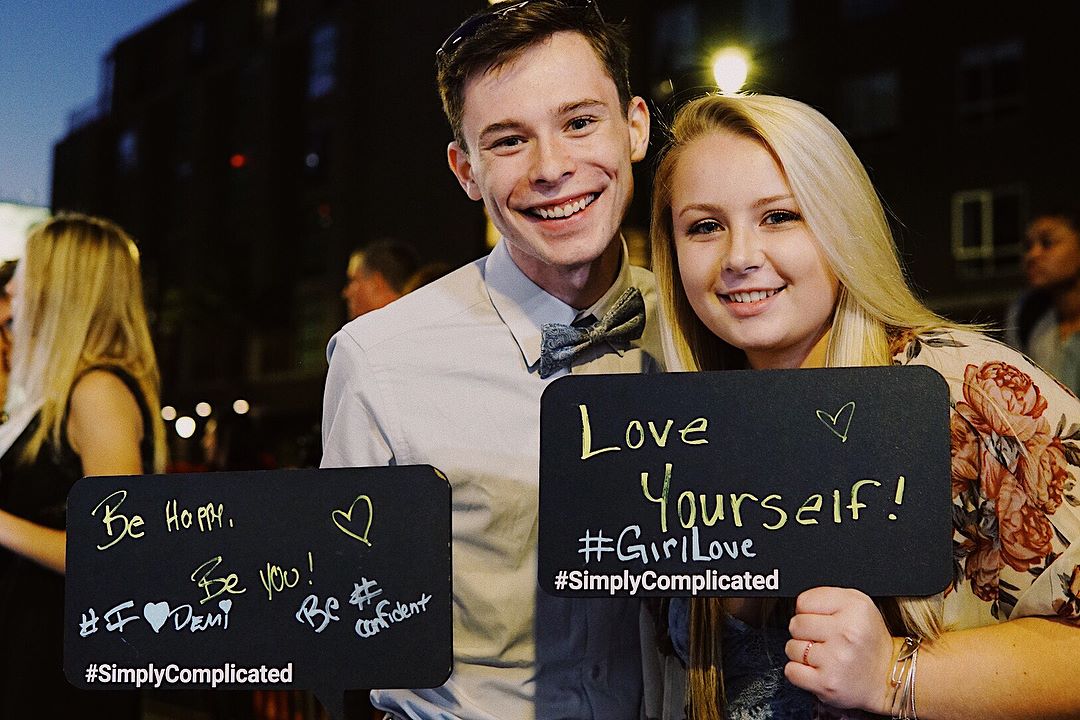 Be Happy.
Be you!
#I ♥ Demi
Be # confident
#SimplyComplicated
Love
Yourself!
#GirlLove
#SimplyComplicated